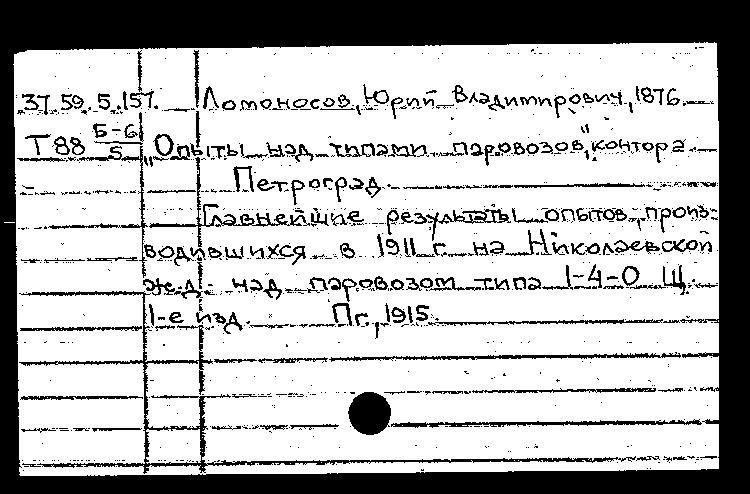 37.59.5.157. Ломоносов, Юрий Владимирович, 1876.
Т 88 5-6/5 „Опыты над типами паровозов", контора.
Петроград.
Главнейшие результаты опытов, произ-
водившихся в 1911 г. на Николаевской
ж.д. над паровозом типа 1-4-0 Щ.
1-е изд. Пг., 1915.